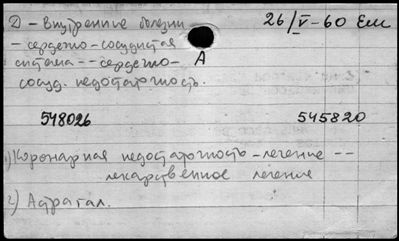 Д – Внутренние болезни 26/V–60 Ем
– сердечно-сосудистая
система -- сердечно- А
сосуд. недостаточность.
548026 545820
1) Коронарная недостаточность – лечение --
лекарственное лечение
2) Астрагал.